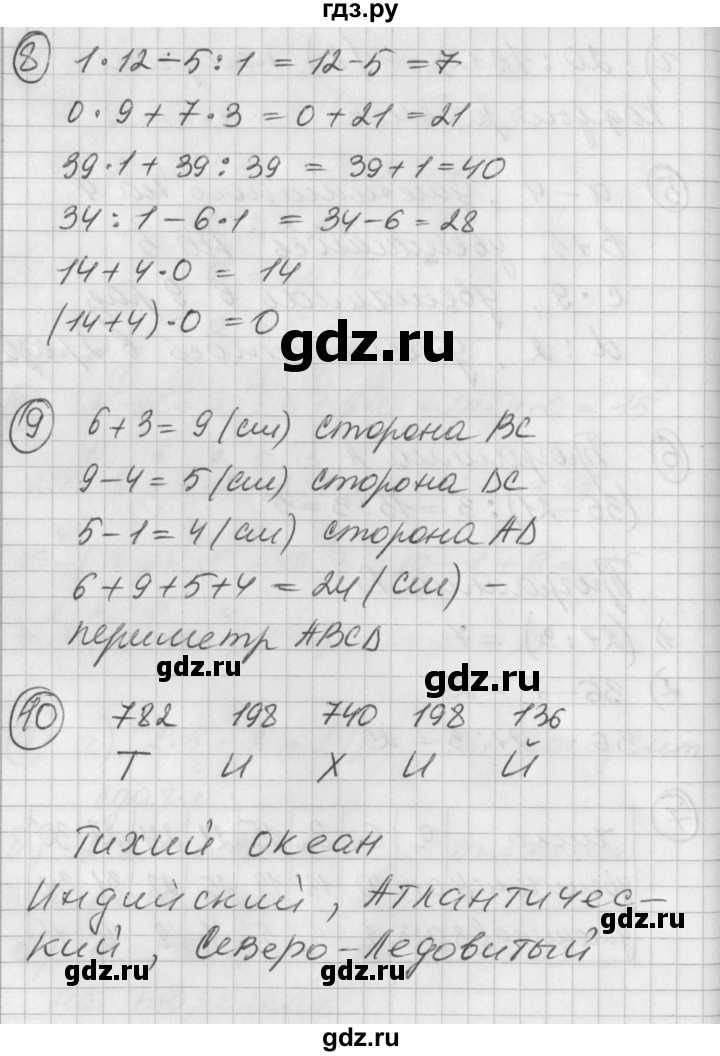 гдз.ру
8 1·12-5:1 = 12-5 = 7
0·9+7·3 = 0+21 = 21
39·1+39:39 = 39+1=40
34:1-6·1 = 34-6=28
14+4·0 = 14
(14+4)·0 = 0
gdz.ru
9 6+3=9 (см) сторона BC
9-4=5 (см) сторона DC
5-1=4 (см) сторона AD
6+9+5+4=24 (см) -
периметр ABCD
gdz.ru
gdz.ru
10 782 198 740 198 136
Т И Х И Й
Тихий океан
Индийский, Атлантичес-
gdz.ru
кий, Северо-Ледовитый
gdz.ru
gdz.ru
gdz.ru